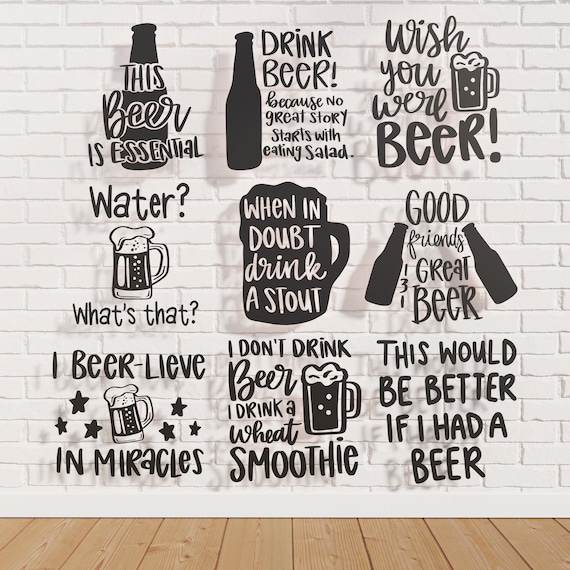 THIS
Beer
IS ESSENTIAL
DRINK
BEER!
because no
great story
starts with
eating salad.
Wish
you
were
BEER!
Water?
What's that?
WHEN IN
DOUBT
drink
A STOUT
GOOD
friends
&
GREAT
BEER
I BEER-LIEVE
IN MIRACLES
I DON'T DRINK
Beer
I DRINK a
wheat
SMOOTHIE
THIS WOULD
BE BETTER
IF I HAD A
BEER